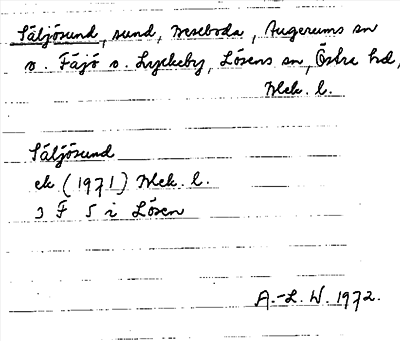 Säljösund, sund, Veseboda, Augerums sn
o. Fäjö o. Lyckeby, Lösens sn, Östra hd,
Blek. l.
Säljösund
ek (1971) Blek. l.
3 F 5 i Lösen
A.-L. W. 1972.